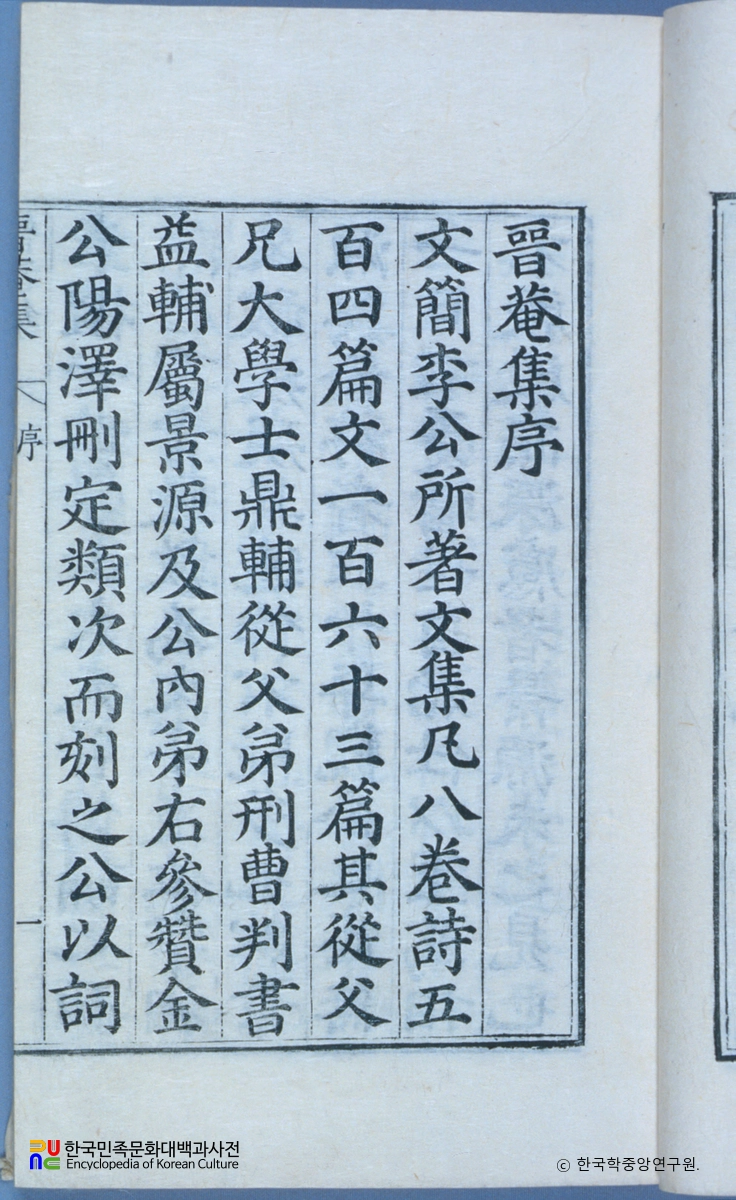 晉菴集序
文簡李公所著文集凡八卷詩五
百四篇文一百六十三篇其從父
兄大學士鼎輔從父弟刑曹判書
益輔屬景源及公內弟右參贊金
公陽澤刪定類次而刻之公以詞
晉菴集 序 一
한국민족문화대백과사전
Encyclopedia of Korean Culture
ⓒ 한국학중앙연구원.